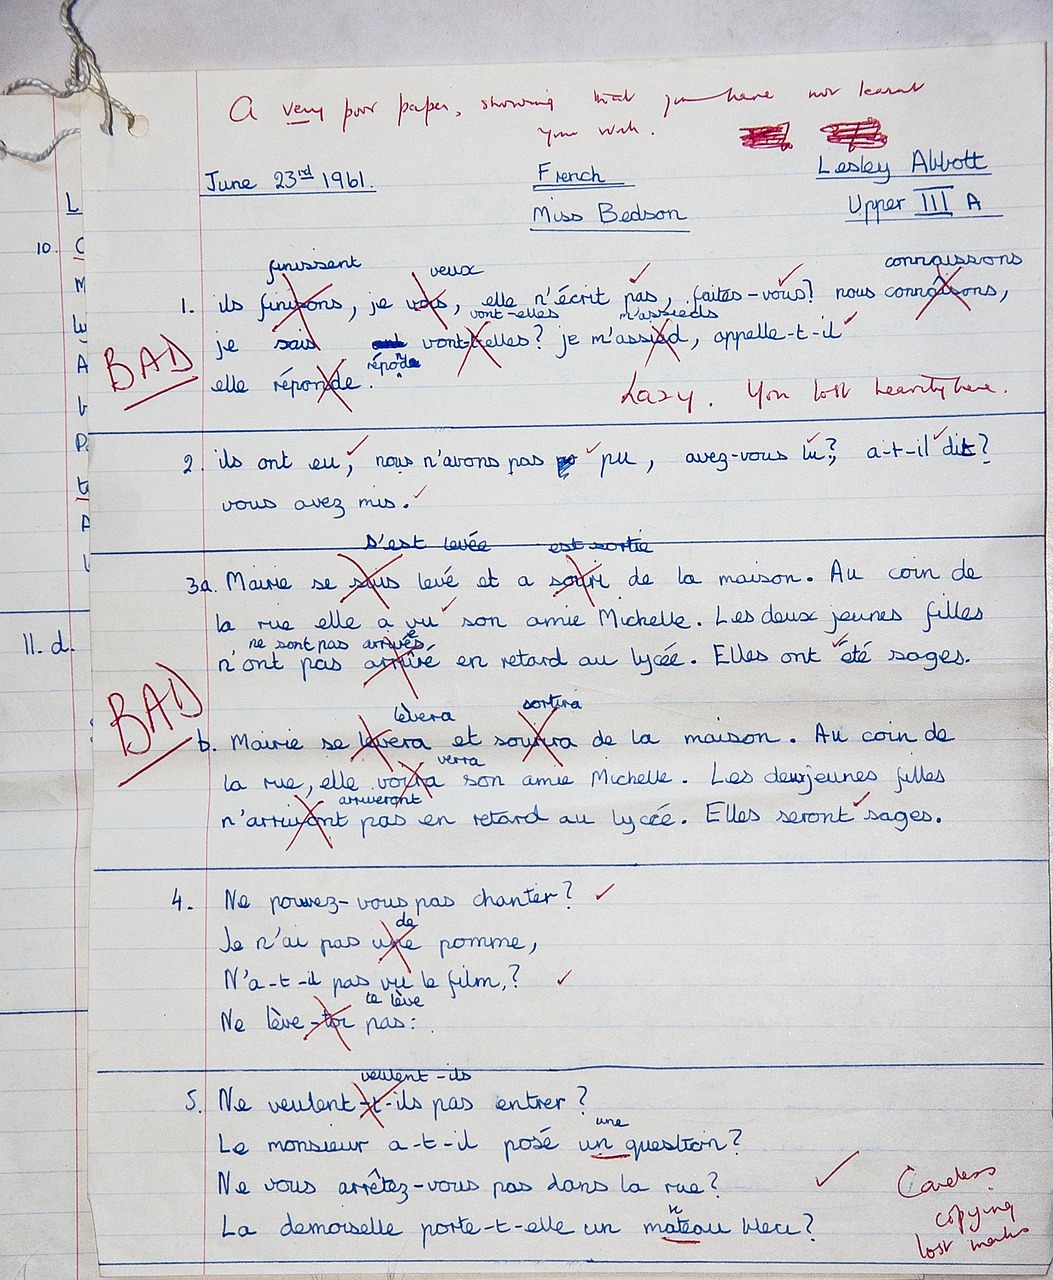 A very poor paper, showing that you have not learnt
your work.
June 23rd 1961.
French
Lesley Abbott
Miss Bedson
Upper III A
L
10. C
M
A
P
A
11. d.
finissent veux connaissons
1. ils finisons, je vois, elle n'écrit pas, faites-vous? nous connaisons,
vont-elles m'assieds
je sais vont-t-elles? je m'assied, appelle-t-il
BAD
réponde
elle réponde.
Lazy. You lost heavily here.
2. ils ont eu, nous n'avons pas pu, avez-vous lu?, a-t-il dit?
vous avez mis.
s'est levée est sortie
3a. Mairie se suis levé et a souri de la maison. Au coin de
la rue elle a vu son amie Michelle. Les deux jeunes filles
ne sont pas arrivées
n'ont pas arrivé en retard au lycée. Elles ont été sages.
BAD
lèvera sortira
b. Mairie se levera et sourira de la maison. Au coin de
verra
la rue, elle voira son amie Michelle. Les deux jeunes filles
arriveront
n'arriv​ont pas en retard au lycée. Elles seront sages.
4. Ne pouvez-vous pas chanter?
de
Je n'ai pas une pomme,
N'a-t-il pas vu le film,?
te lève
Ne lève-toi pas:
veulent-ils
5. Ne veulent-t-ils pas entrer?
une
Le monsieur a-t-il posé un question?
Ne vous arrêtez-vous pas dans la rue?
n
La demoiselle porte-t-elle un mateau bleu?
Careless
copying
lost marks